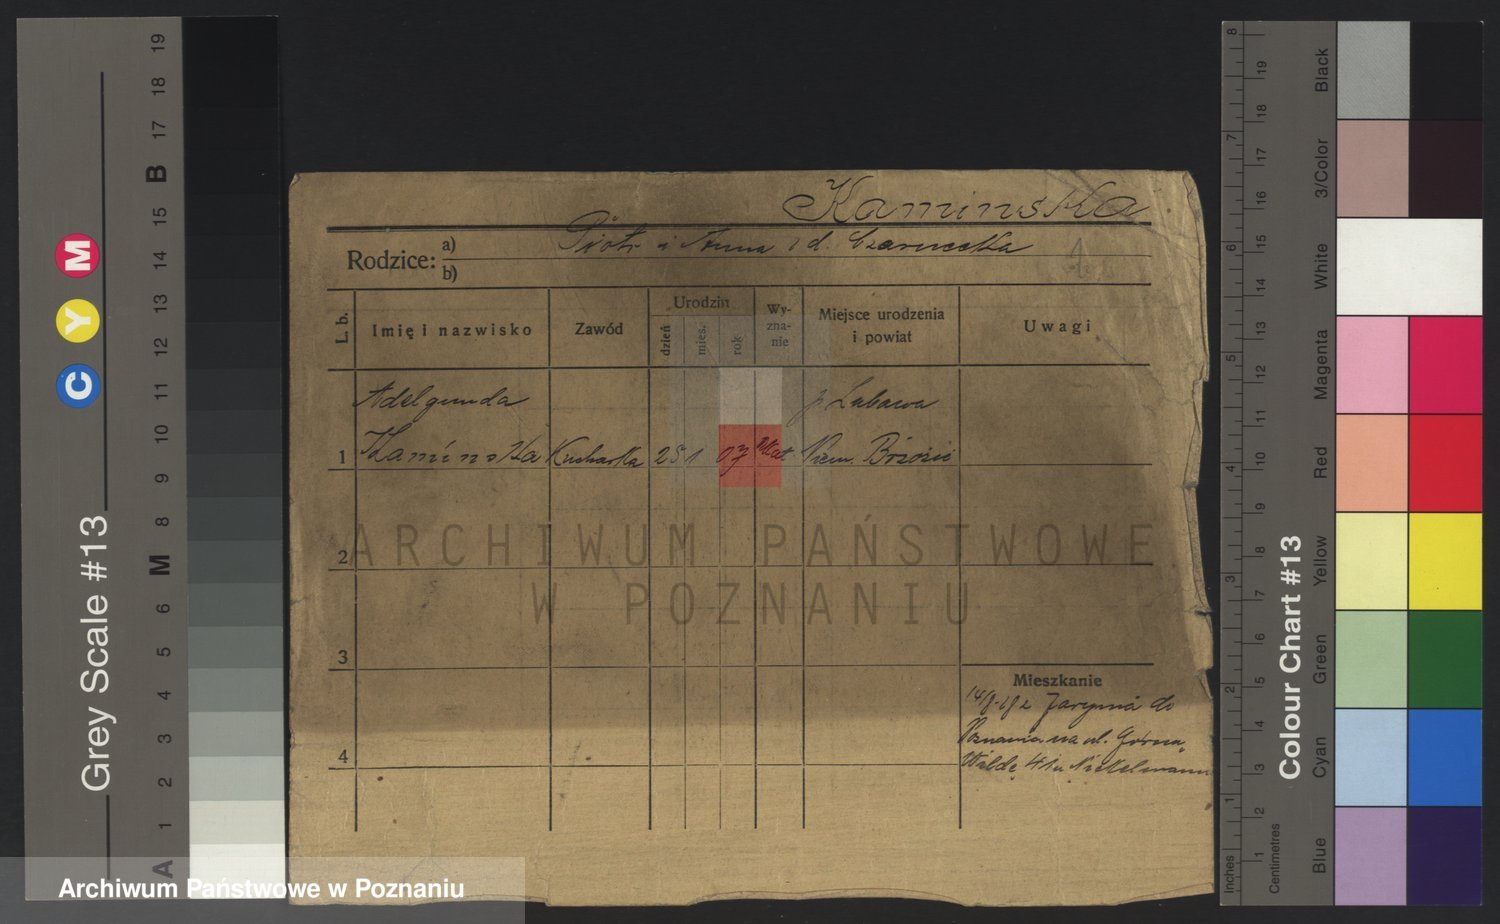 Kaminska
Rodzice: a) Piotr i Anna z d. Czarnecka
b)
1
L. b.
Imię i nazwisko
Zawód
Urodzin
dzień
mies.
rok
Wy-
zna-
nie
Miejsce urodzenia
i powiat
Uwagi
Adelgunda p. Lubawa
1 Kaminska Kucharka 25 1 07 Rkat Niem. Brzozie
2
3
4
Mieszkanie
z Jarynia do
Poznania na ul. Górna
Wilde 41 u Nickelmann
ARCHIWUM PAŃSTWOWE
W POZNANIU
Archiwum Państwowe w Poznaniu
Grey Scale #13
C Y M
A 1 2 3 4 5 6 M 8 9 10 11 12 13 14 15 B 17 18 19
Colour Chart #13
Blue Cyan Green Yellow Red Magenta White 3/Color Black
Inches 1 2 3 4 5 6 7 8
Centimetres 1 2 3 4 5 6 7 8 9 10 11 12 13 14 15 16 17 18 19